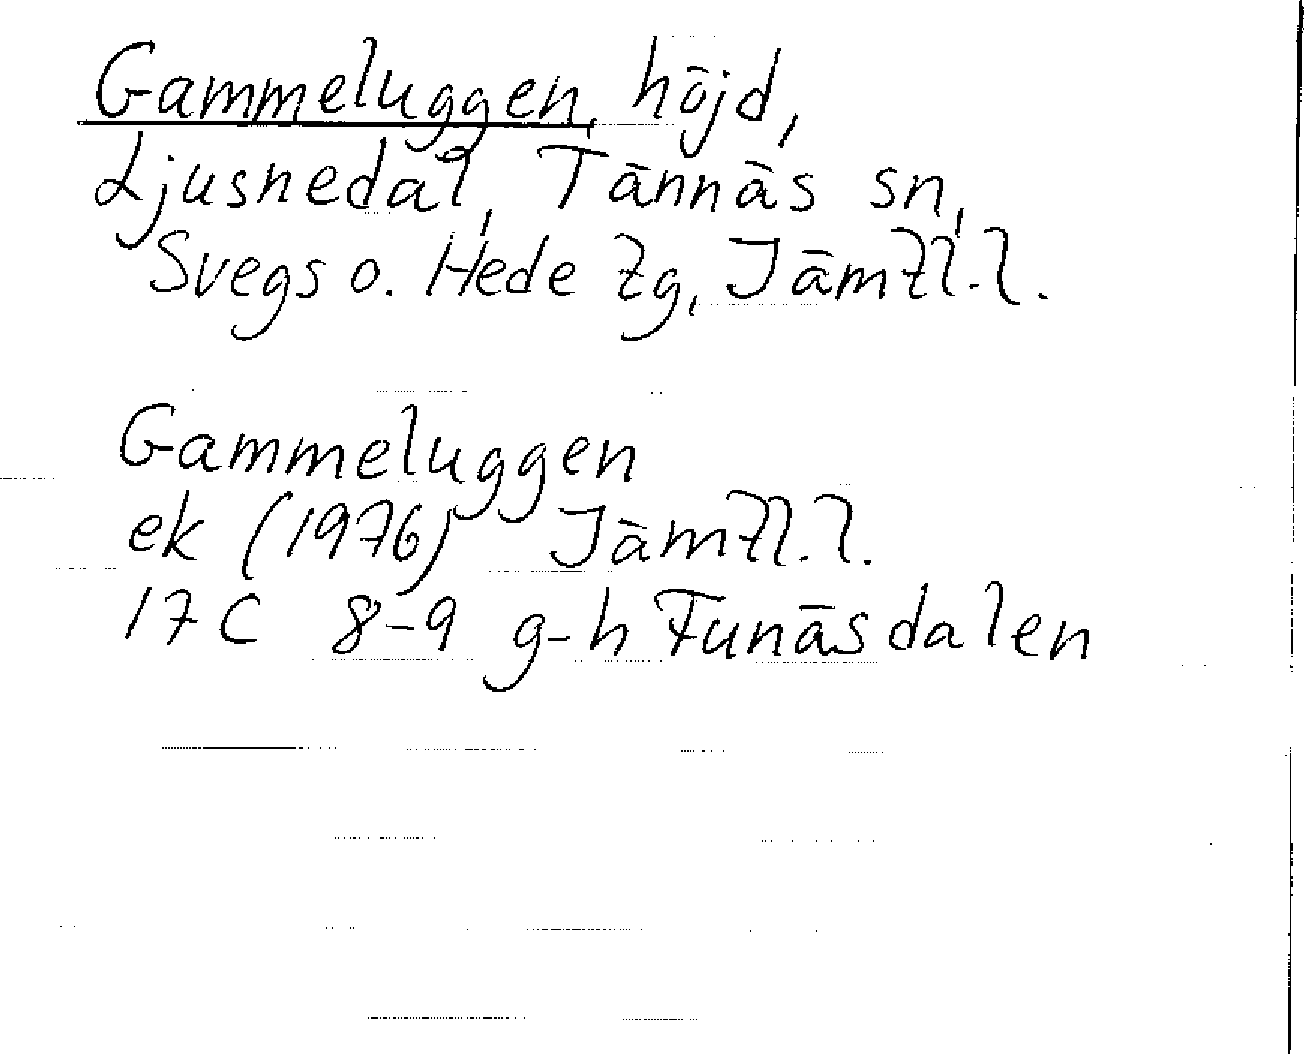 Gammeluggen, höjd,
Ljusnedal, Tännäs sn,
Svegs o. Hede tg, Jämtl.l.
Gammeluggen
ek (1976) Jämtl.l.
17C 8-9 g-h Funäsdalen